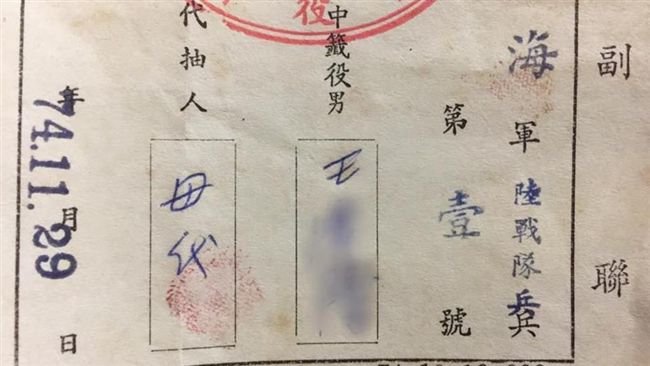 副聯
海軍陸戰隊兵
第壹號
中籤役男 王
代抽人 母代
年月日
74.11.29
役